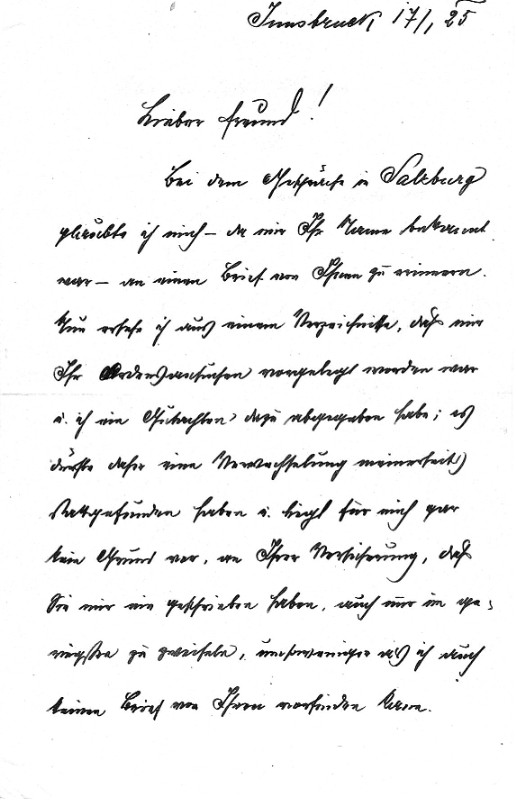 Innsbruck, 17/1, 25
Lieber Freund!
Bei dem Gespräche in Salzburg
glaubte ich mich – da mir Ihr Name bekannt
war – an einen Brief von Ihnen zu erinnern.
Nun ersehe ich aus einem Verzeichnisse, daß mir
Ihr Ordensansuchen vorgelegt worden war
u. ich ein Gutachten dazu abgegeben habe; es
dürfte daher eine Verwechselung meinerseits
stattgefunden haben u. liegt für mich gar
kein Grund vor, an Ihrer Versicherung, daß
Sie mir nie geschrieben haben, auch nur im ge-
ringsten zu zweifeln, umsoweniger als ich auch
keinen Brief von Ihnen vorfinden kann.